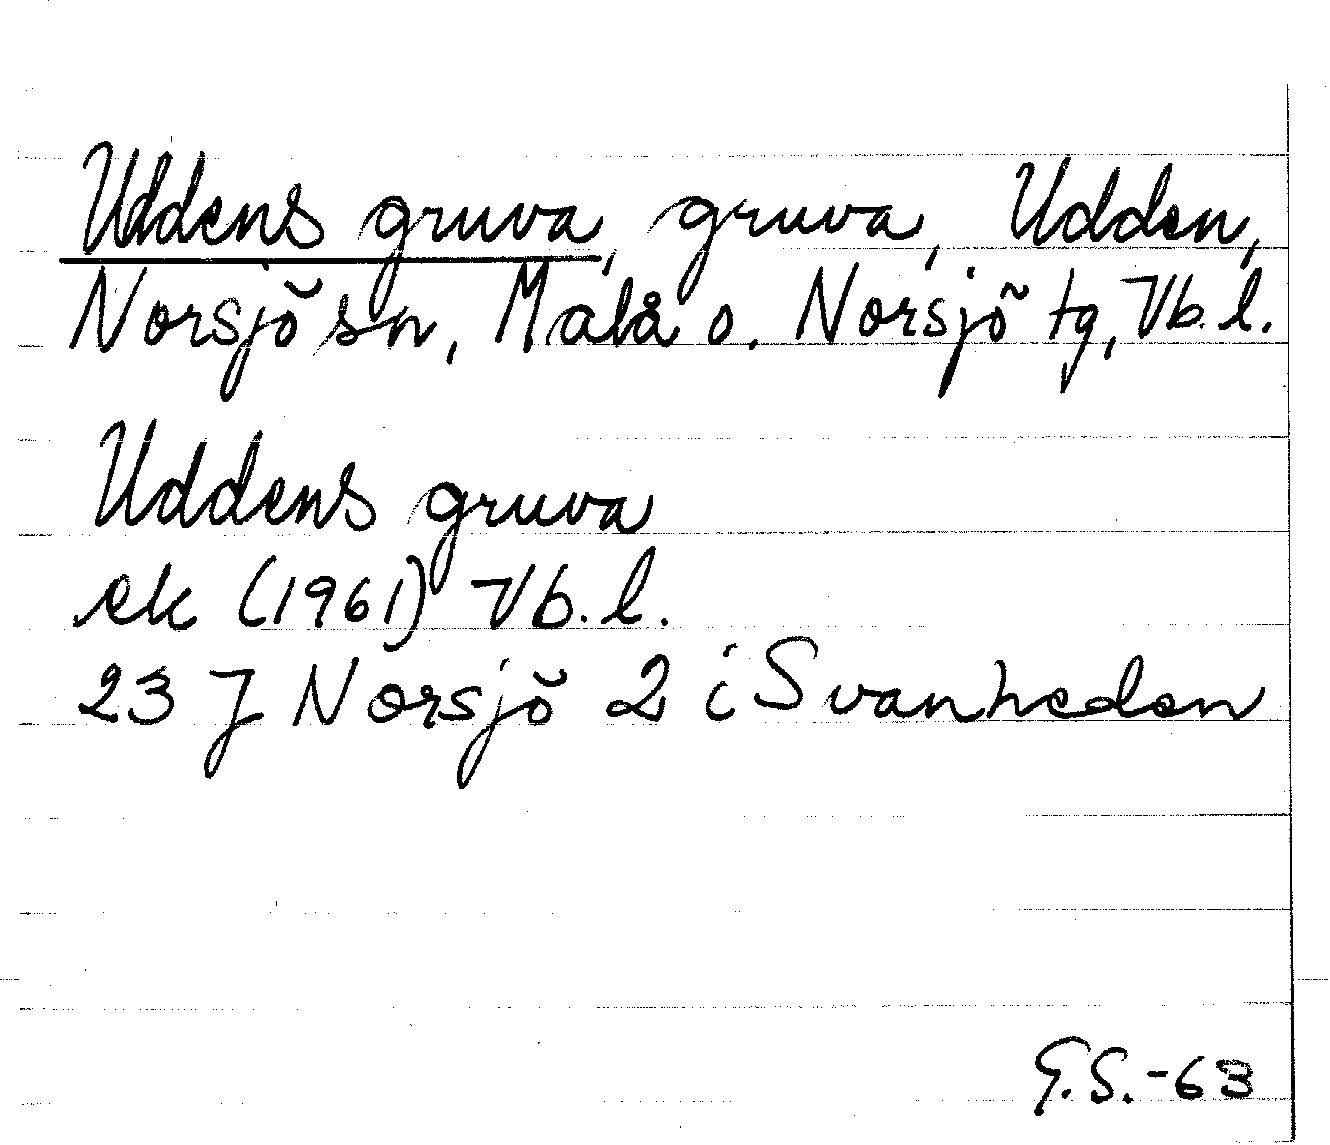 Uddens gruva, gruva, Udden,
Norsjö sn, Malå o. Norsjö tg, Vb. l.
Uddens gruva
ek (1961) Vb. l.
23 J Norsjö 2 i Svanheden
G.S.-63